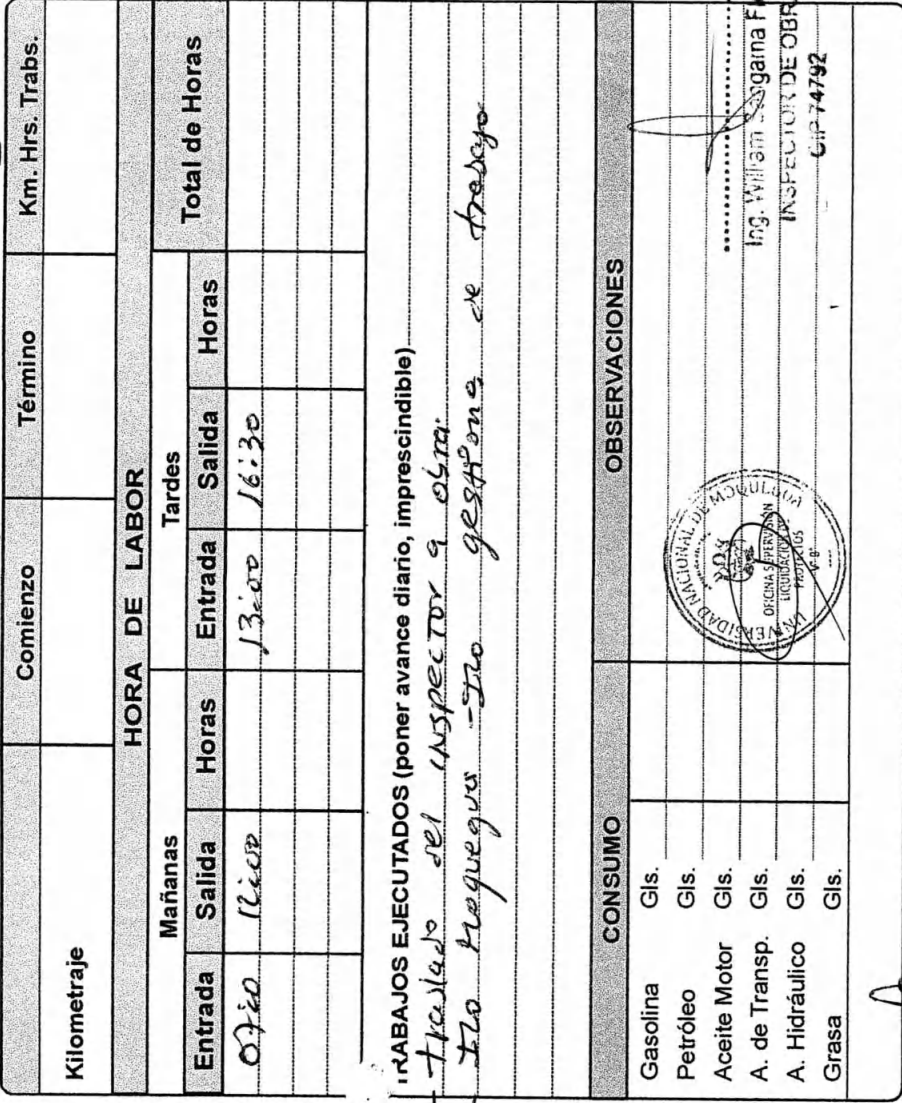 Comienzo Término Km. Hrs. Trabs.
Kilometraje
HORA DE LABOR
Mañanas Tardes Total de Horas
Entrada Salida Horas Entrada Salida Horas
13:00 16:30
TRABAJOS EJECUTADOS (poner avance diario, imprescindible)
traslado del inspector a obra.
Ilo Moquegua - Ilo gestiona de trabajo
CONSUMO OBSERVACIONES
Gasolina Gls.
Petróleo Gls.
Aceite Motor Gls.
A. de Transp. Gls.
A. Hidráulico Gls.
Grasa Gls.
UNIVERSIDAD NACIONAL DE MOQUEGUA
OFICINA SUPERVISIÓN
LIQUIDACIÓN
PROYECTOS
Ing. William
INSPECTOR DE OBR
CIP 74792